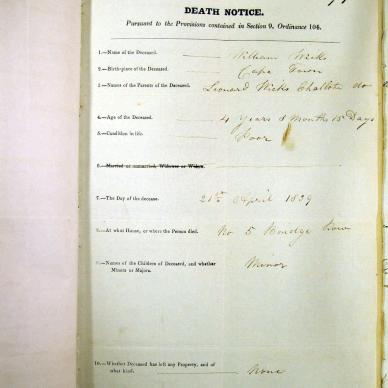 DEATH NOTICE.
Pursuant to the Provisions contained in Section 9, Ordinance 104.
1.—Name of the Deceased. William Wicks
2.—Birth-place of the Deceased. Cape Town
3.—Names of the Parents of the Deceased. Leonard Wicks Challote do
4.—Age of the Deceased. 4 Years 8 Months 15 Days
5.—Condition in life. Poor
6.—Married or unmarried, Widower or Widow.
7.—The Day of the decease. 21st April 1839
8.—At what House, or where the Person died. No 5
9.—Names of the Children of Deceased, and whether Minor
Minors or Majors.
10.—Whether Deceased has left any Property, and of
what kind. None